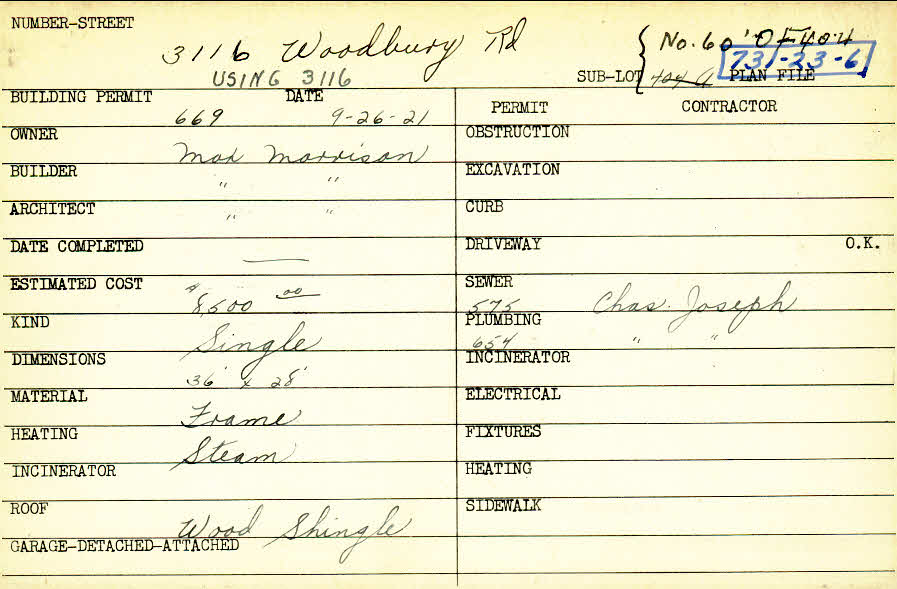 NUMBER-STREET
3116 Woodbury Rd
{ No. 60' OF 404
USING 3116
SUB-LOT 404 a PLAN FILE 731-23-6
BUILDING PERMIT DATE
669 9-26-21
PERMIT CONTRACTOR
OWNER
Max Morrison
OBSTRUCTION
BUILDER
" "
EXCAVATION
ARCHITECT
" "
CURB
DATE COMPLETED
—
DRIVEWAY O.K.
ESTIMATED COST
$8,500 00
SEWER
575 Chas. Joseph
KIND
Single
PLUMBING
654 " "
DIMENSIONS
36' x 28'
INCINERATOR
MATERIAL
Frame
ELECTRICAL
HEATING
Steam
FIXTURES
INCINERATOR
HEATING
ROOF
Wood Shingle
SIDEWALK
GARAGE-DETACHED-ATTACHED